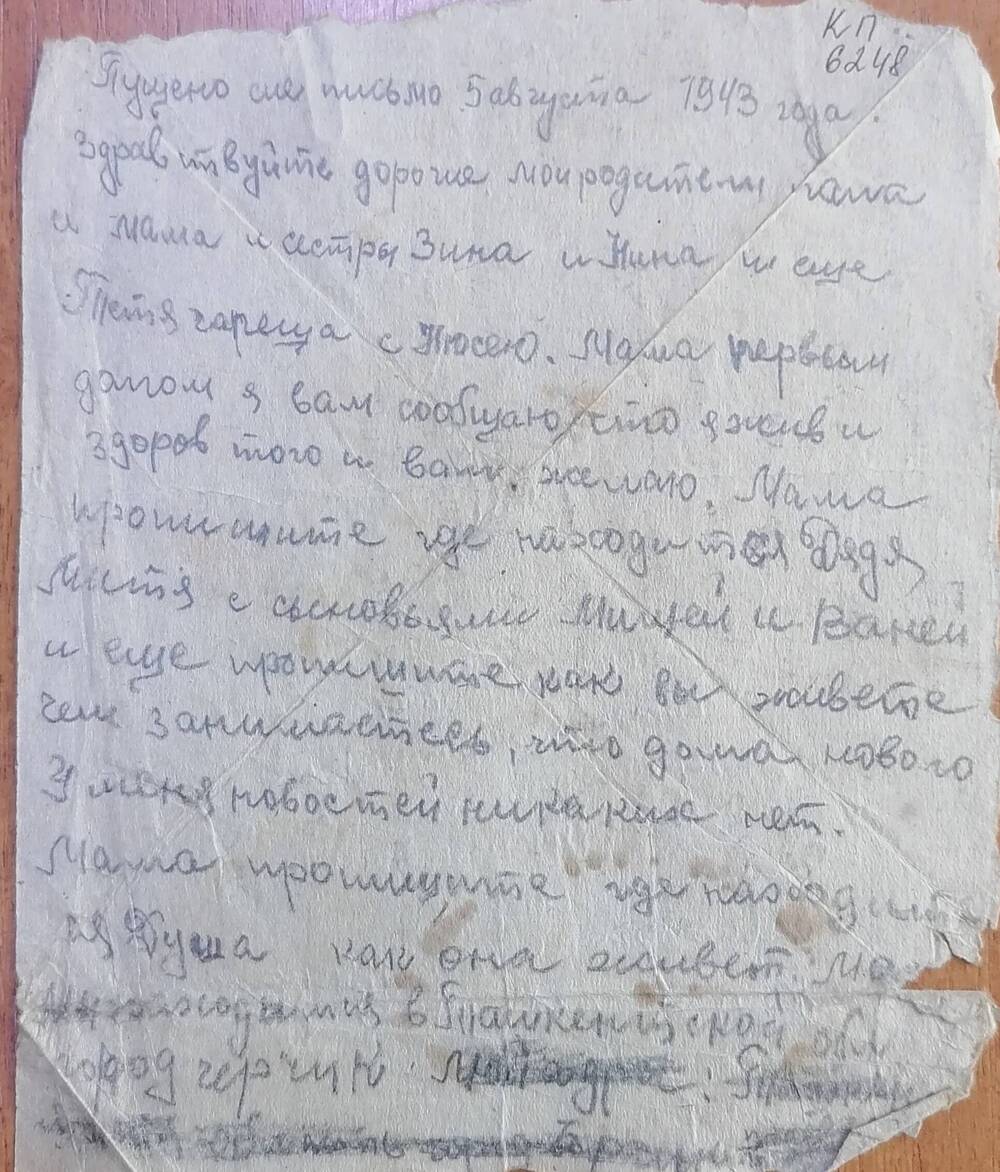 КП
6248
Пущено сие письмо 5 августа 1943 года.
Здравствуйте дорогие мои родители папа
и мама и сестры Зина и Нина и еще
Тетя гареща с Нюсею. Мама первым
долгом я вам сообщаю что я жив и
здоров того и вам желаю. Мама
пропишите где находится Дядя
Митя с сыновьями Мишей и Ваней
и еще пропишите как вы живете
чем занимаетесь, что дома нового
У меня новостей никаких нет.
Мама пропишите где находит
ся Душа как она живет. Мо
находимся в Ташкентской обл
город черчик. Мой адрес: